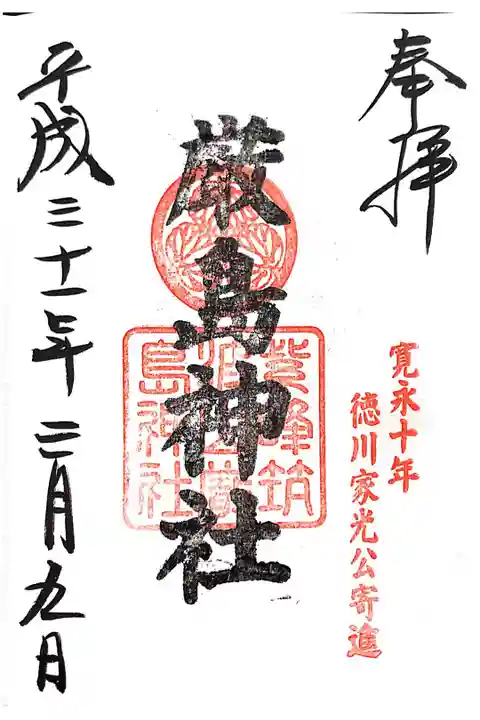 奉拝
寛永十年
徳川家光公寄進
厳島神社
紫峰筑
島神社
平成三十一年二月九日